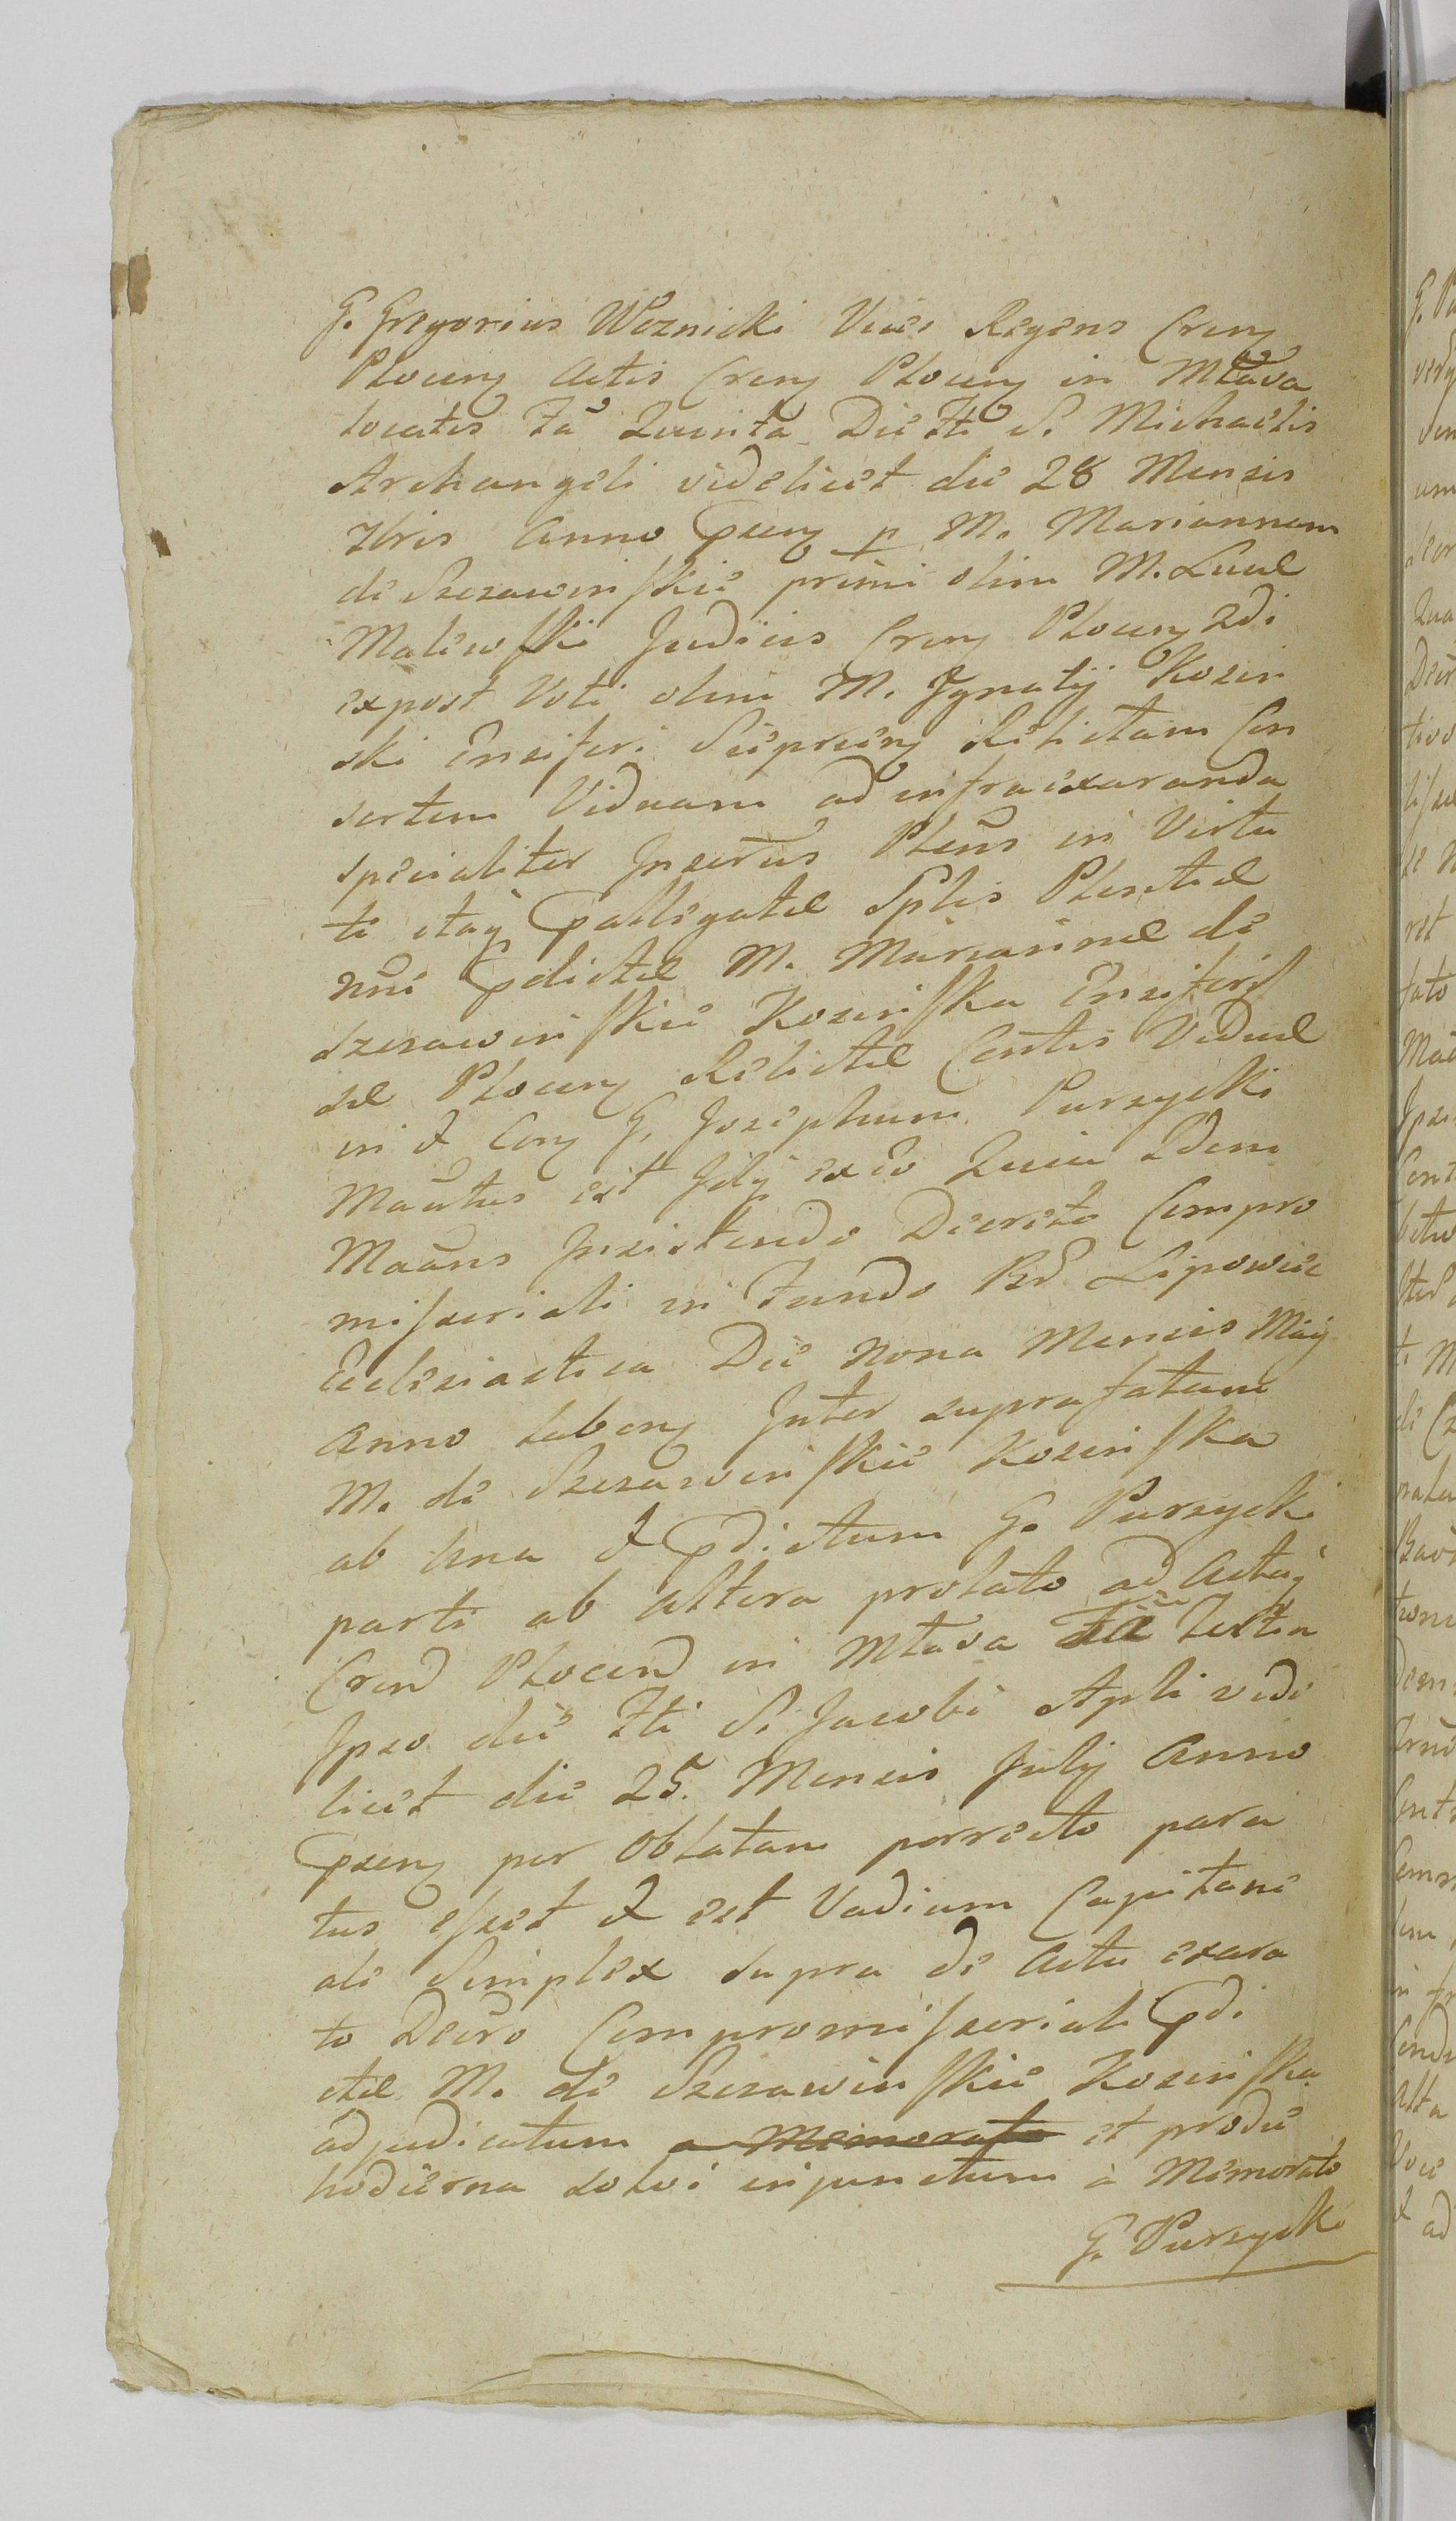 G. Gregorius Woznicki Vices Regens Cren
Plocen Actis Cren Plocen in Mława
locatis Fâ Quinta Die Fti S. Michaelis
Archangeli videlicet die 28 Mensis
7bris Anno Praen p M. Mariannam
de Szczawinskie primi olim M. Lucae
Malewski Judicis Cren Plocen 2di
expost Voti olim M. Ignatij Kozin
ski Ensiferi Sieprcen Relictam Con
sortem Viduam ad infra exaranda
specialiter Inscrüs Plenus in Virtu
te itaq praallegatae Splis Plenitae
nni praedictae M. Mariannae de
Szczawinskie Kozinska Ensiferis
sae Plocen Relictae Contis Viduae
in & Con G. Josephum Purzycki
Maötus est Jdq ex eo Quia Idem
Maöns Insistendo Decreto Compro
missoriali in Fundo Bd Lipowiec
Ecclesiastica Die Nona Mensis Maij
Anno laben Inter suprafatam
M. de Szczawinskie Kozinska
ab una & praedictum G. Purzycki
parte ab altera prolato ad Actaq
Cren Plocen in Mława Fâ Tertia
Ipso die Fti S. Jacobi Apli vide
licet die 25. Mensis Julij Anno
praesen per Oblatam porrecto para
tus esset & est Vadium Capitane
ale Simplex supra de Actu exara
to Decro Compromissoriali praedi
ctae M. de Szczawinskie Kozinska
adjudicatum a Memorato et pro die
hodierna solvi injunctum à Memorato
G. Purzycki